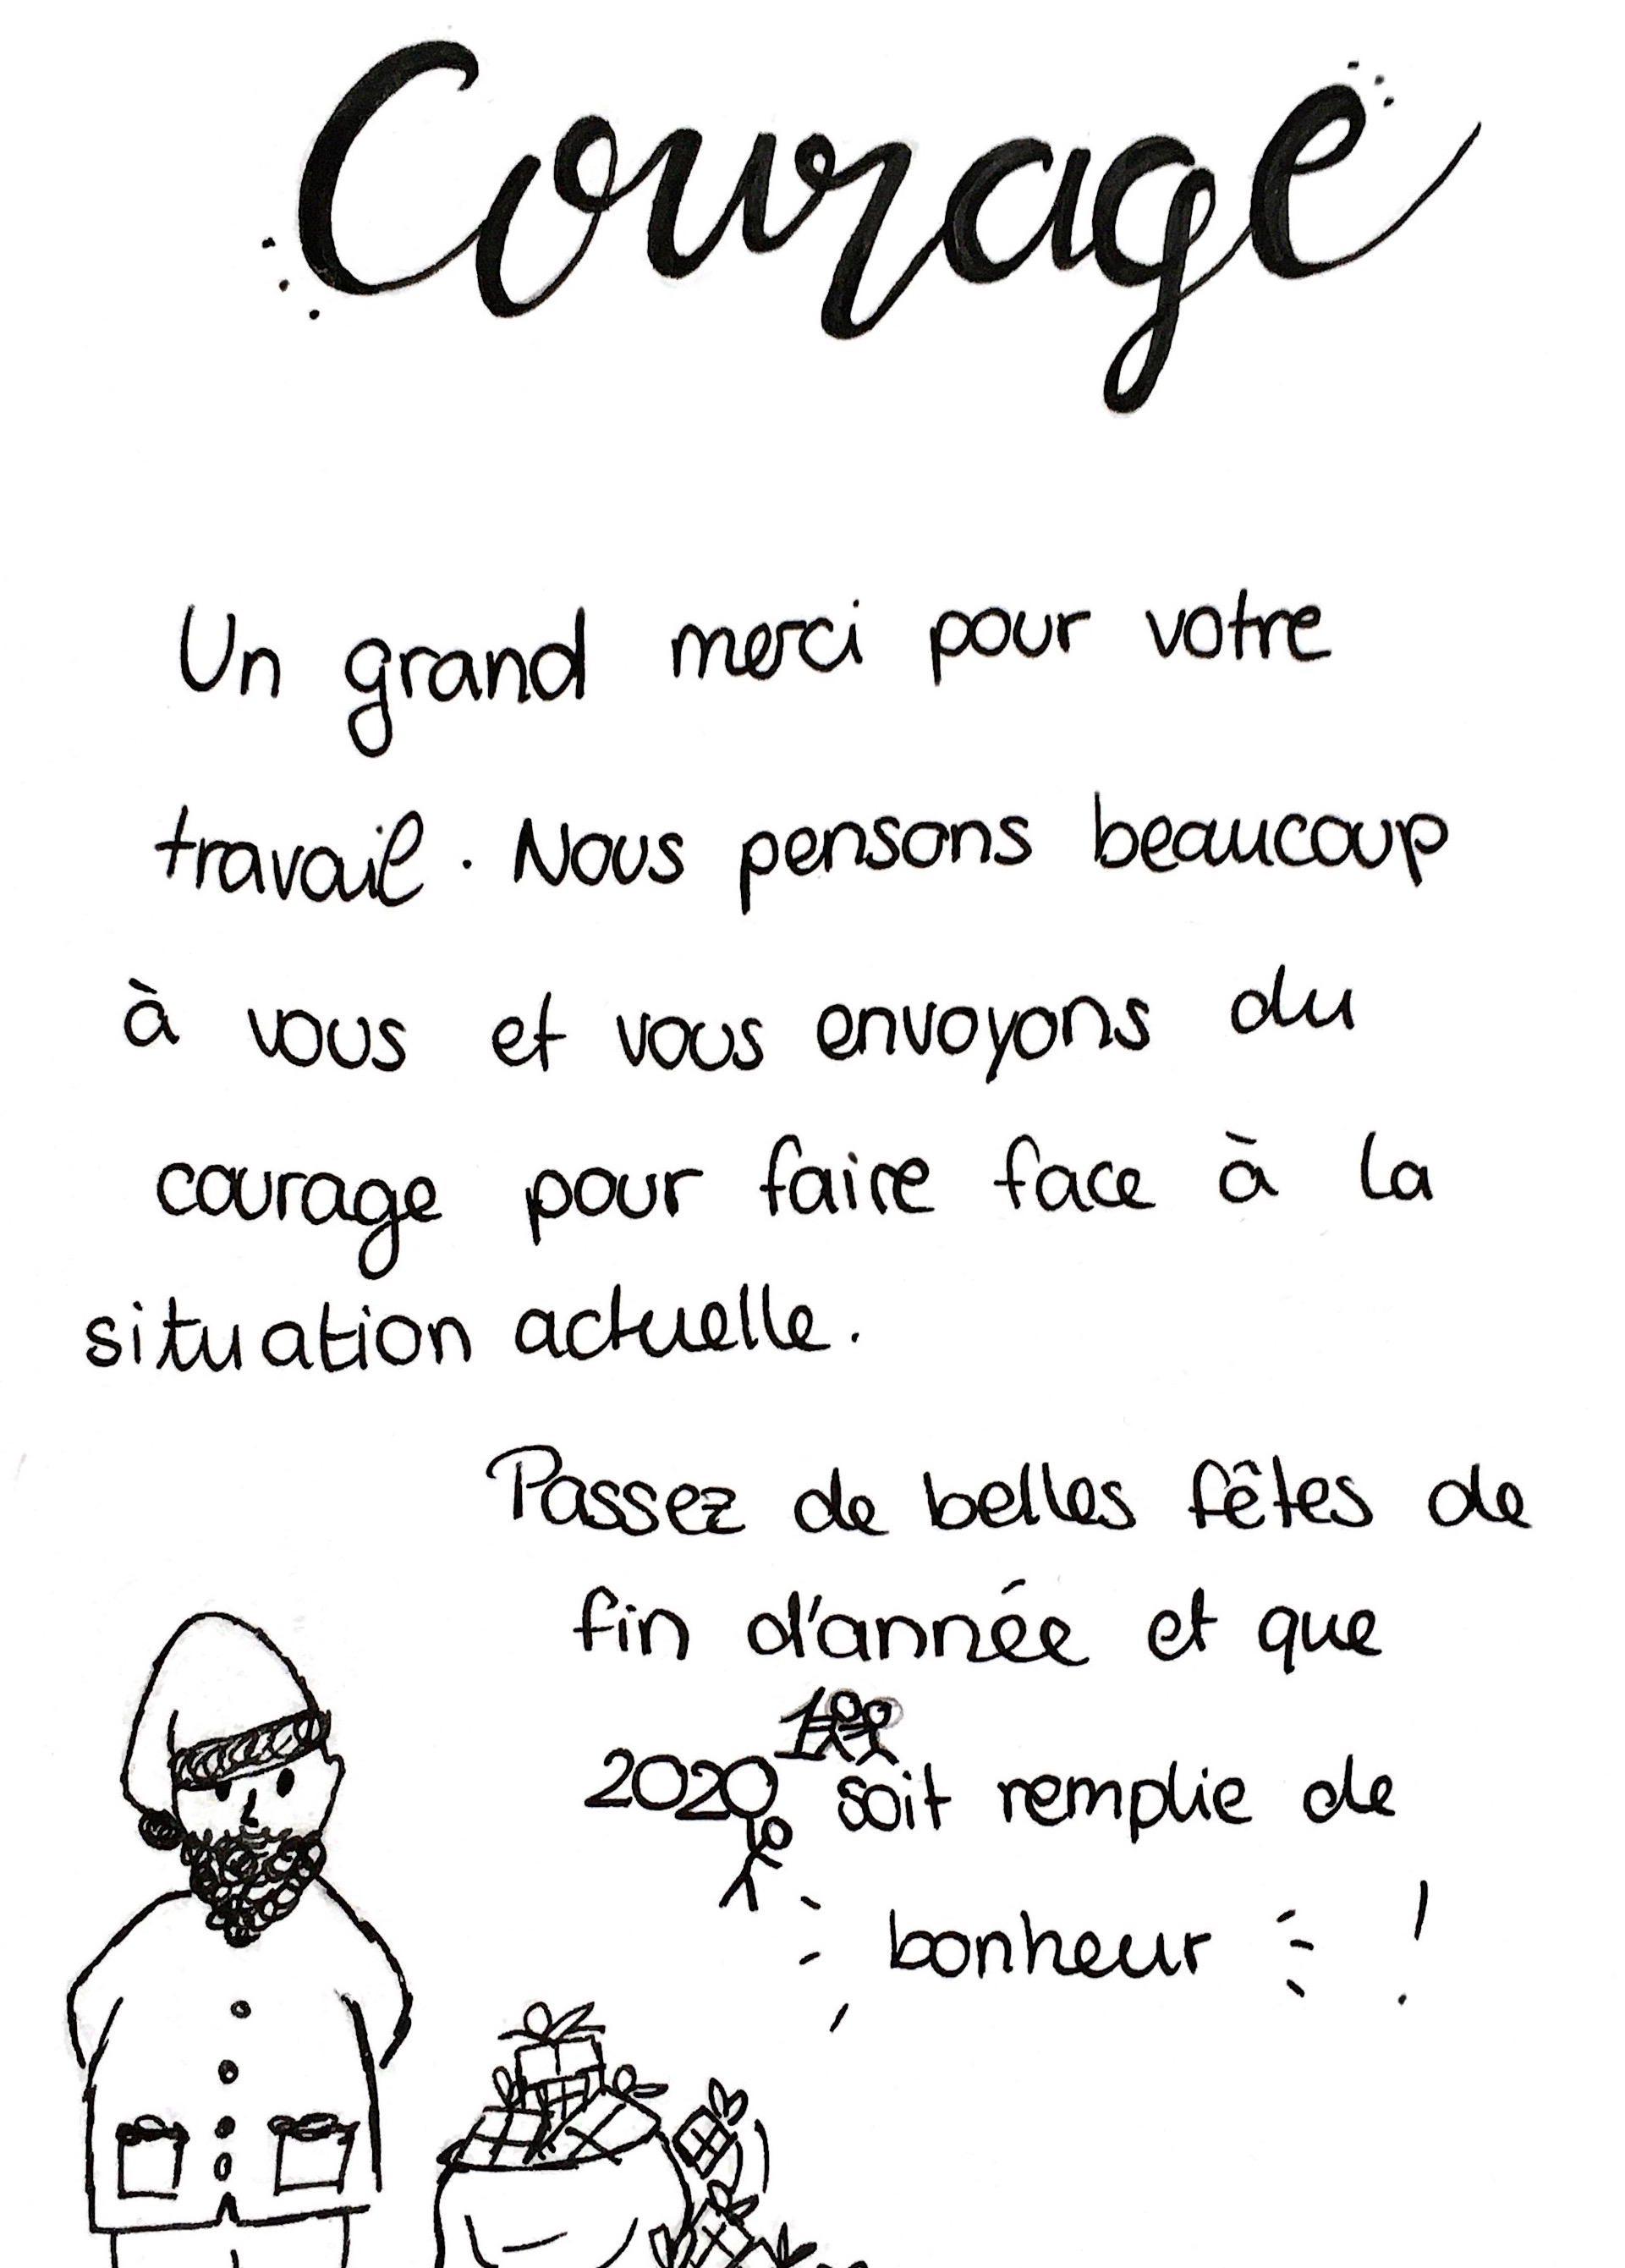 Courage
Un grand merci pour votre
travail. Nous pensons beaucoup
à vous et vous envoyons du
courage pour faire face à la
situation actuelle.
Passez de belles fêtes de
fin d'année et que
2020 1 soit remplie de
bonheur !